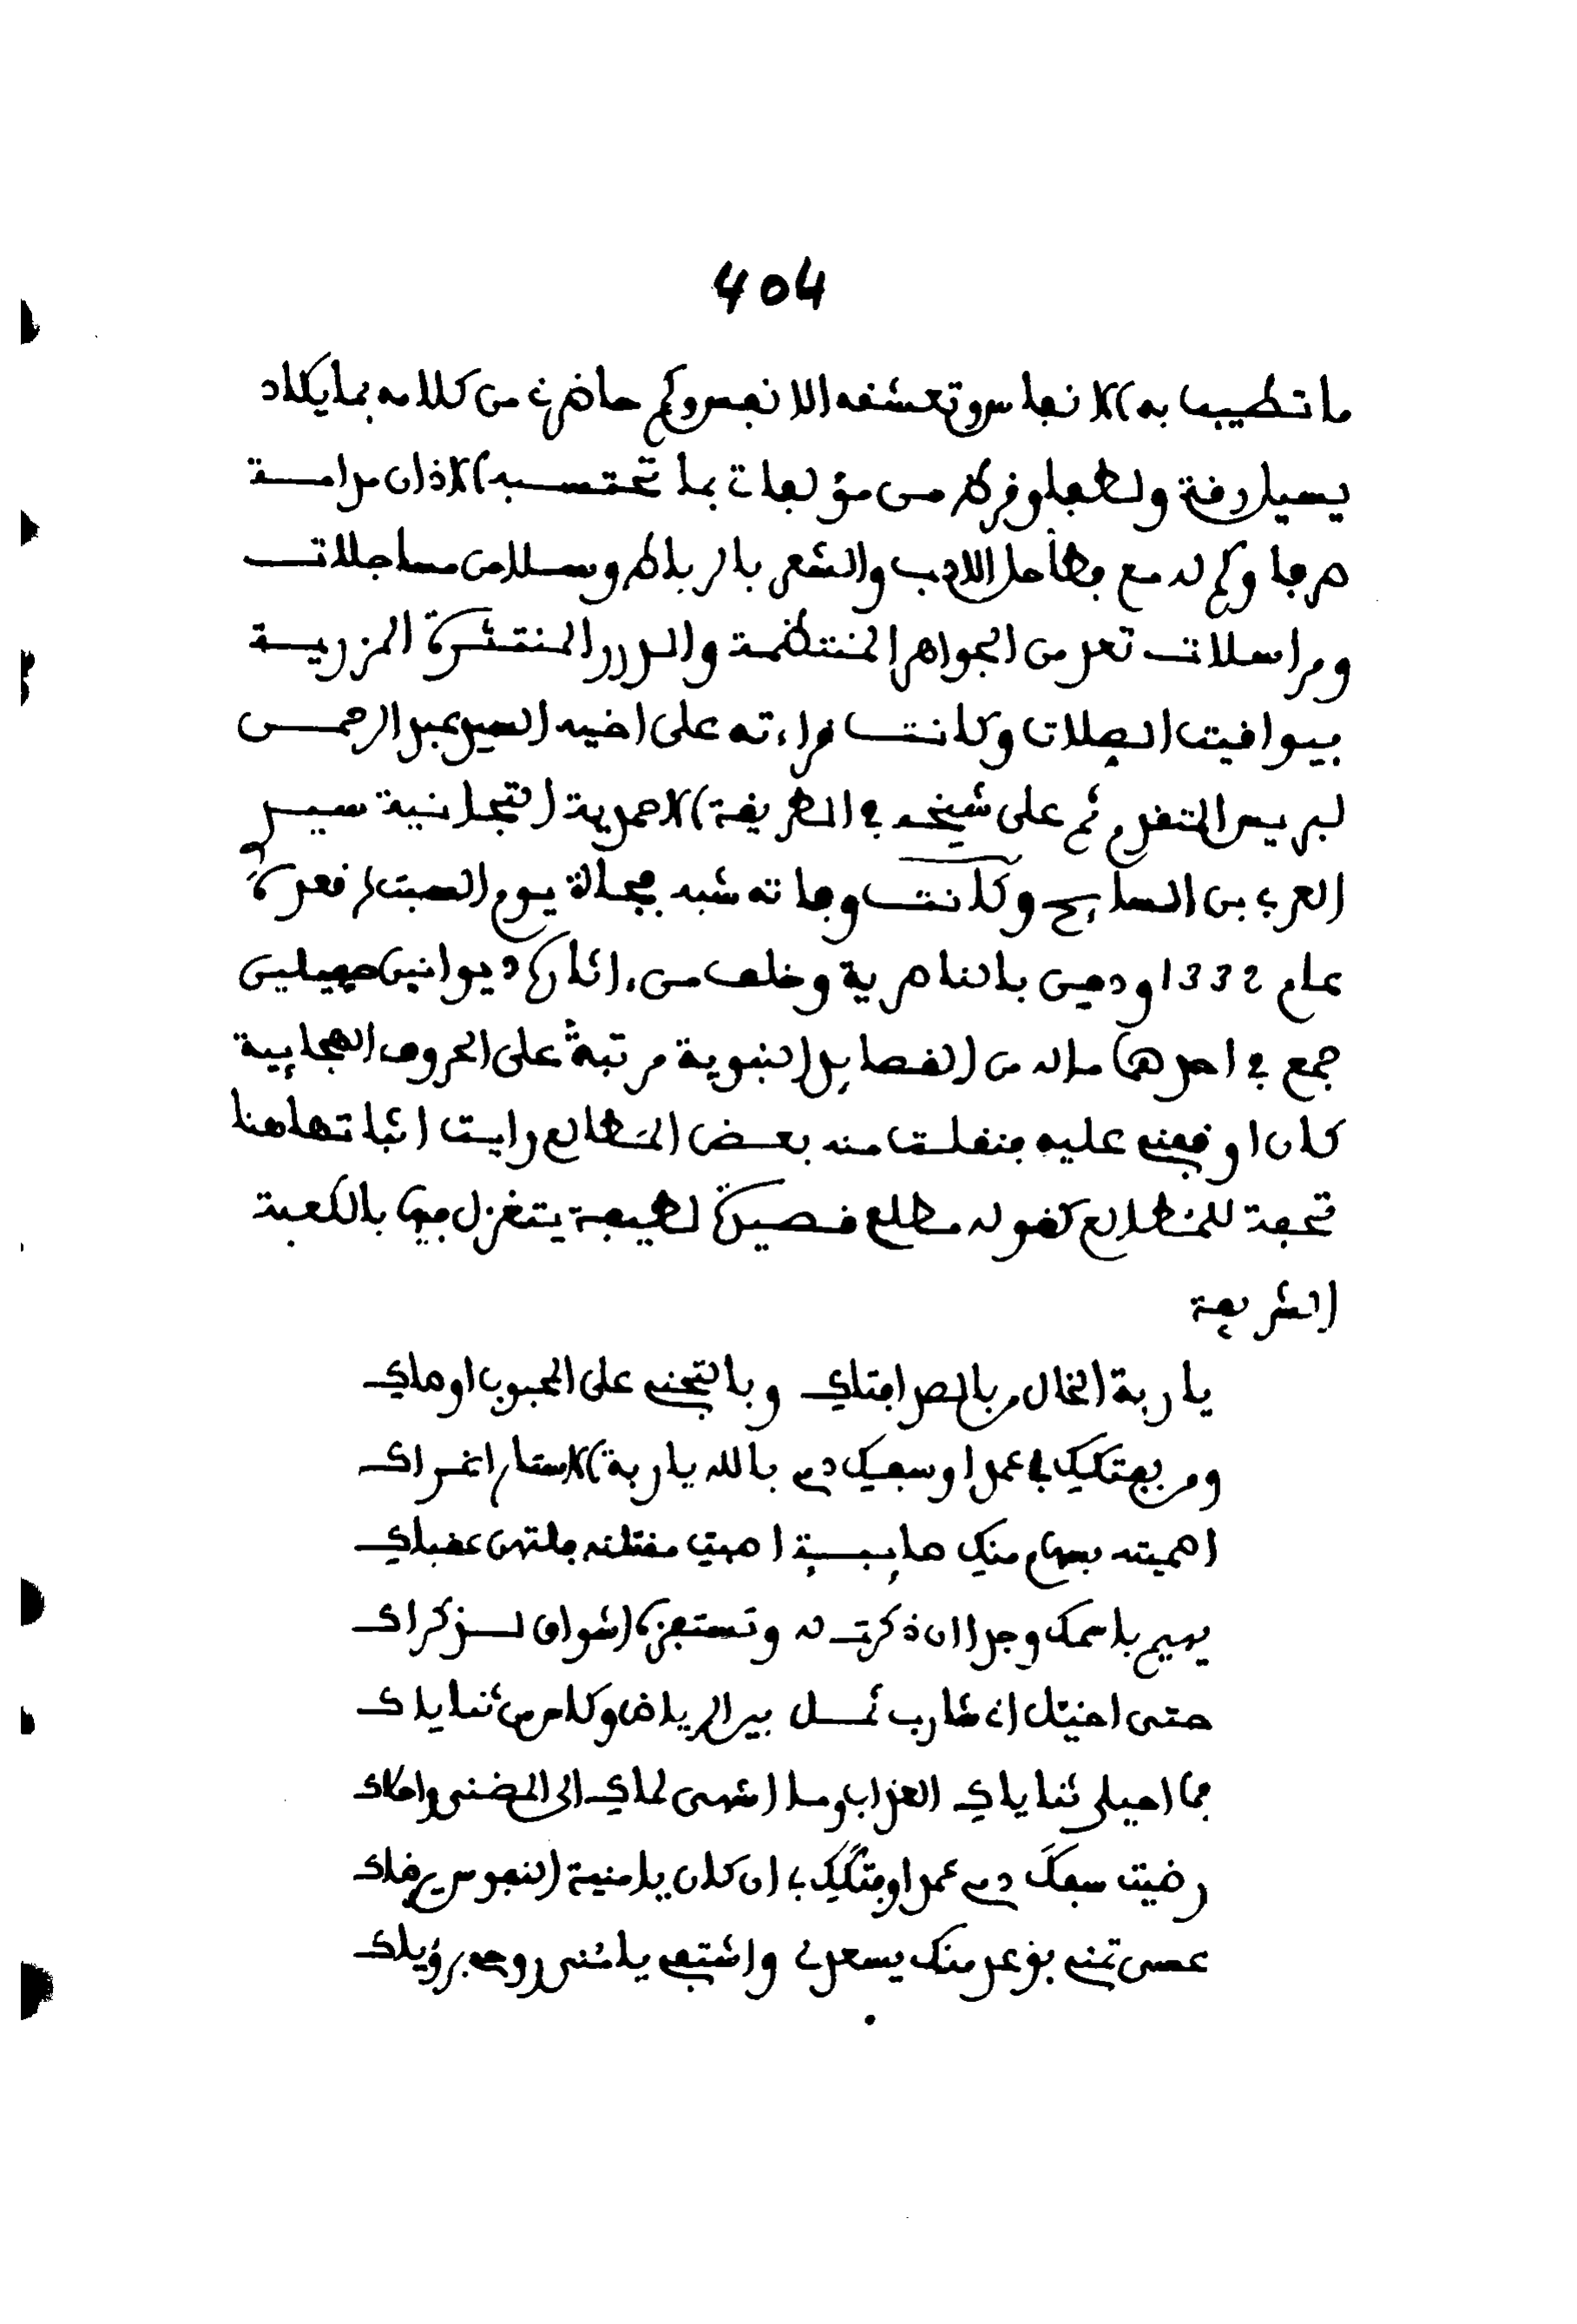 404
ما تطيب به الانفاس وتعشقه الانفس وكم حاضرني من كلامه بما يكاد
يسيل رقة ولطفا وقرط من مؤلفات بما تحتسبه الاذان مدامـــة
صرفا وكم له مع فطاحل الادب والشعر بالرباط وسلا من مساجلات
ومراسلات تعد من الجواهر المنتظمة والدرر المنتثرة المزريــة
بيواقيت الصلات وكانت قراءته على اخيه السيد عبد الرحمن
لبريس المتقدم ثم على شيخه في الطريقة الاحمدية التجانية سيد
العربي بن السايح وكانت وفاته شبه فجاة يوم السبت قعدة
عام 1332 ودفن بالناصرية وخلف من ءاثاره ديوانين جميلين
جمع في احدهما ماله من القصايد النبوية مرتبة على الحروف الهجايية
كان اوقفني عليه فنقلت منه بعض المطالع رايت اثباتها هنا
تحفة للمطالع كقوله مطلع قصيدة لطيفة يتغزل فيها بالكعبة
الشريفة
يا ربة الخال من بالصد افتاك وبالتجني على المحبوب اوصاك
ومن بهتكك لي عمدا وسفك دمي بالله يا ربة الاستار اغراك
اصميته بسهام منك صايبة اصبت مقتله فلتهن عقباك
يهيم باسمك وجدا ان ذكرت له وتستفزه اشواق لذكراك
حتى اخيل اني شارب ثمل بين الرياض وكاس من ثناياك
فما احيلى ثناياك العذاب وما اشهى لماك الى المضنى واحلاك
رضيت سفك دمي عمدا وفتكك بي ان كان يا منية النفوس يرضاك
عسى تمني بوعد منك يسعدني واشتفي يا منى روحي برؤياك